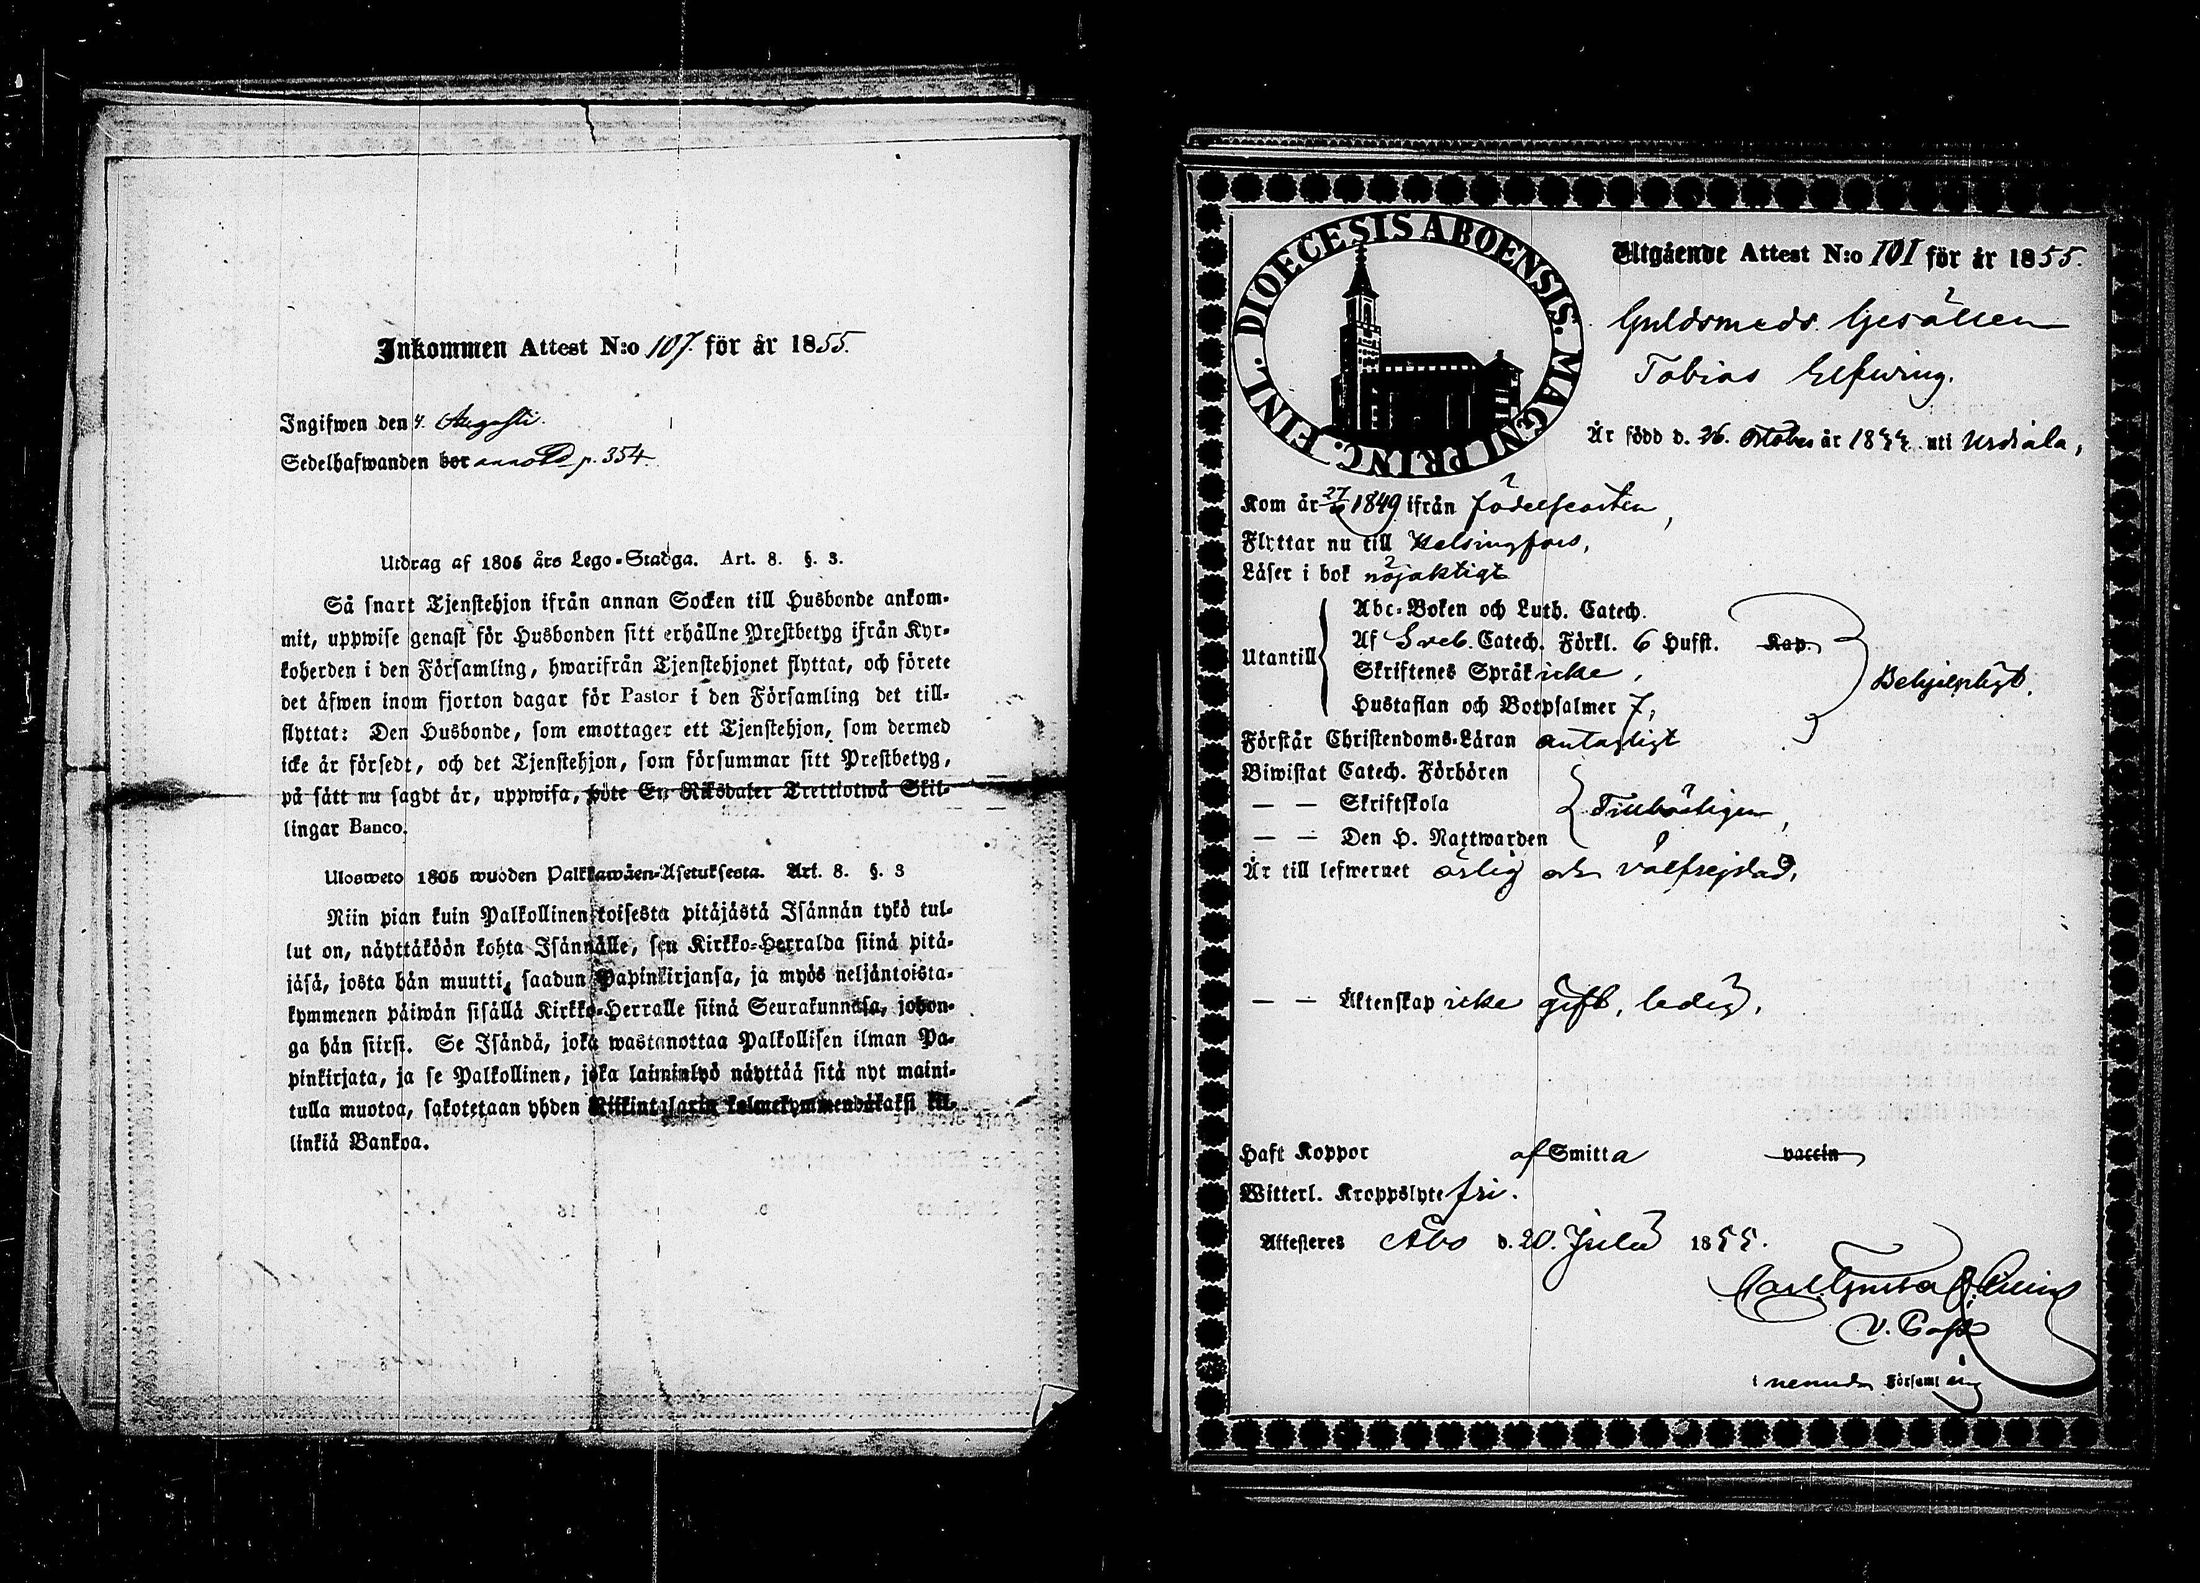 Inkommen Attest N:o 107. för år 1855.
Ingifwen den 4. Augusti.
Sedelhafwanden bor annoterad p. 354.
Utdrag af 1805 års Lego-Stadga. Art. 8. §. 3.
Så snart Tjenstehjon ifrån annan Socken till Husbonde ankom-
mit, uppwise genast för Husbonden sitt erhållne Prestbetyg ifrån Kyr-
koherden i den Församling, hwarifrån Tjenstehjonet flyttat, och förete
det äfwen inom fjorton dagar för Pastor i den Församling det till-
flyttat: Den Husbonde, som emottager ett Tjenstehjon, som dermed
icke är försedt, och det Tjenstehjon, som försummar sitt Prestbetyg,
på sätt nu sagdt är, uppwisa, böte En Riksdaler Trettiotwå Skil-
lingar Banco.
Ulosweto 1805 wuoden Palkkawäen-Asetuksesta. Art. 8. §. 3
Niin pian kuin Palkollinen toisesta pitäjästä Isännän tykö tul-
lut on, näyttäköön kohta Isännälle, sen Kirkko-Herralda siinä pitä-
jäsä, josta hän muutti, saadun Papinkirjansa, ja myös neljäntoista-
kymmenen päiwän sisällä Kirkko-Herralle siinä Seurakunnasa, johon-
ga hän siirsi. Se Isändä, joka wastanottaa Palkollisen ilman Pa-
pinkirjata, ja se Palkollinen, joka laiminlyö näyttää sitä nyt maini-
tulla muotoa, sakotetaan yhden Riikintalarin kolmekymmendäkaksi kil-
linkiä Bankoa.
DIOECESIS ABOENSIS. MAGNI PRINC. FINL.
Utgående Attest N:o 101 för år 1855.
Guldsmeds Gesällen
Tobias Elfving.
Är född d. 26. October år 1833 uti Urdiala,
Kom år 27/6 1849 ifrån födelseorten,
Flyttar nu till Helsingfors,
Läser i bok nöjaktigt
Utantill
Abc-Boken och Luth. Catech.
Af Sveb. Catech. Förkl. 6 Hufst. Kap.
Skriftenes Språk icke,
Hustaflan och Botpsalmer 7,
Behjelpligt.
Förstår Christendoms-Läran antagligt
Biwistat Catech. Förhören
— — Skriftskola
— — Den H. Nattwarden
Tillbörligen,
Är till lefwernet ärlig och välfrejdad,
— — Äktenskap icke gift, ledig,
Haft Koppor af Smitta vaccin
Witterl. Kroppslyte fri.
Attesteres Åbo d. 20. Julii 1855.
Carl Gustaf
V. Past
i nemnda Församling